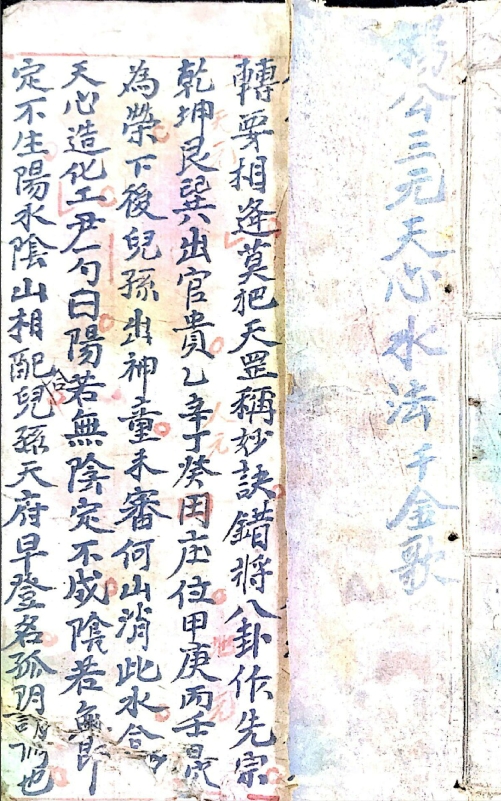 楊公三元天心水法千金歌
轉要相逢莫把天罡稱妙訣錯將八卦作先宗
乾坤艮巽出官貴乙辛丁癸田庄位甲庚丙壬
為榮下後兒孫出神童未審何山消此水合
天心造化工曰陽若無陰定不成陰若無阳
定不生陽水陰山相配合兒孫天府早登名孤阴也
人元
地元